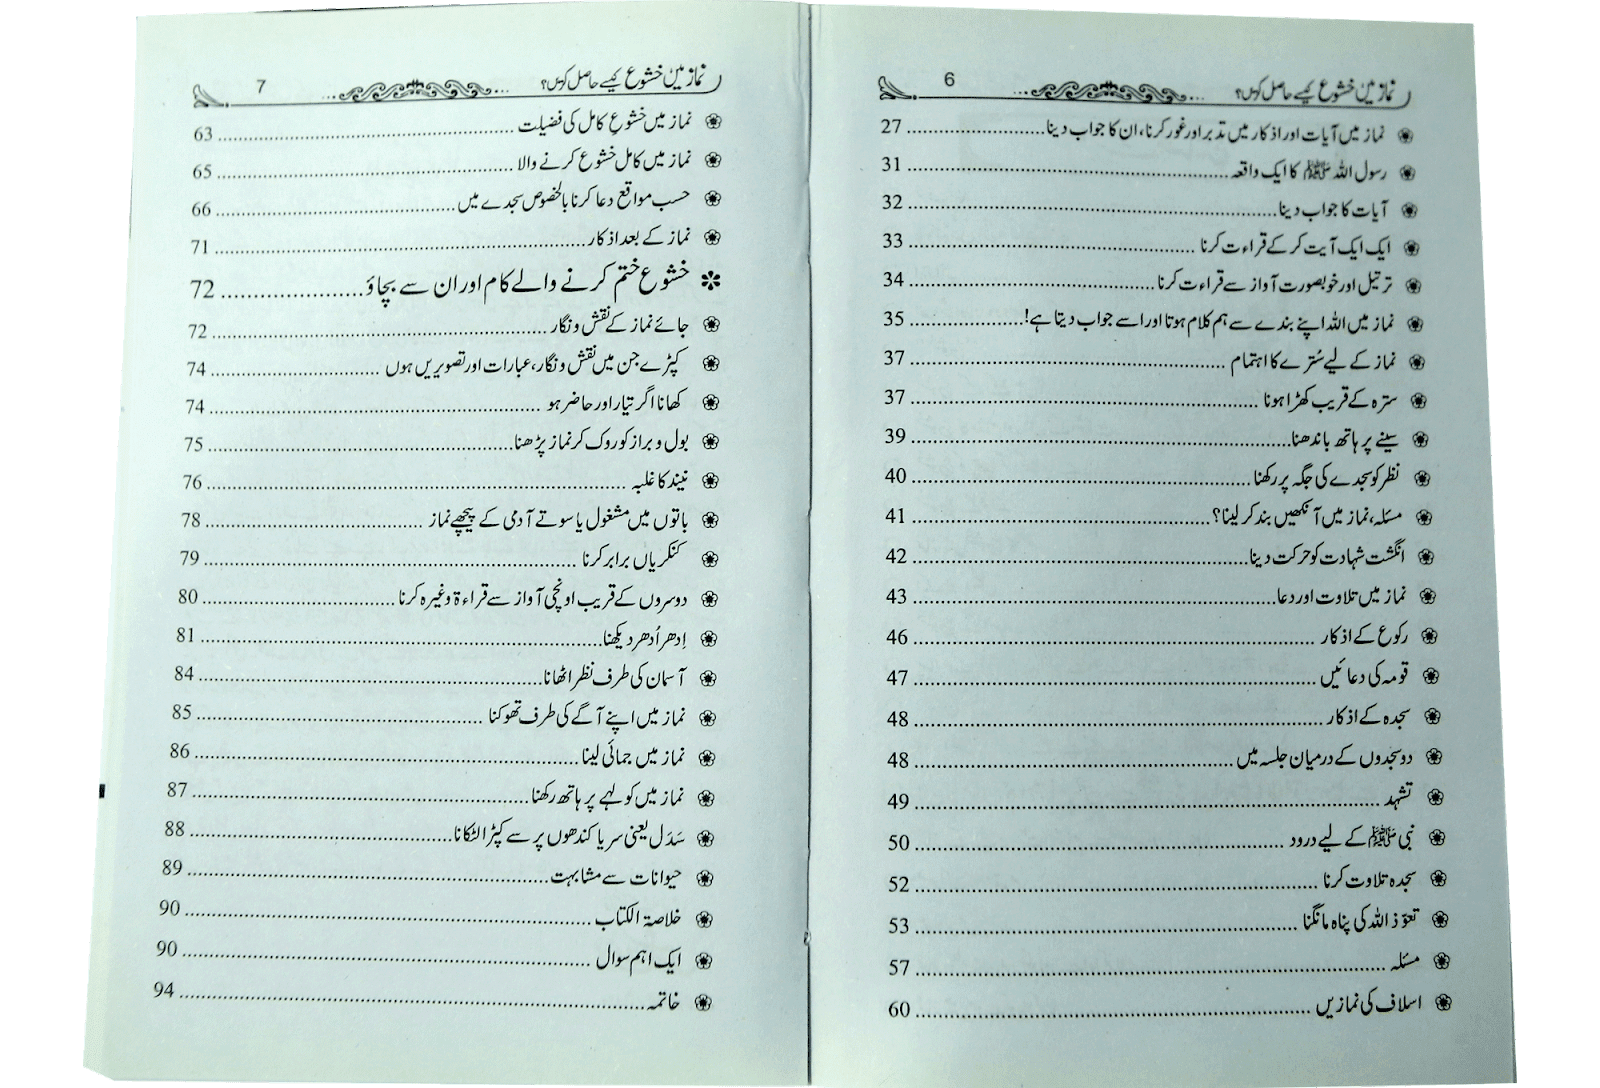 نماز میں خشوع کیسے حاصل کریں؟ 6
نماز میں آیات اور اذکار میں تدبر اور غور کرنا، ان کا جواب دینا 27
رسول اللہ ﷺ کا ایک واقعہ 31
آیات کا جواب دینا 32
ایک ایک آیت کر کے قراءت کرنا 33
ترتیل اور خوبصورت آواز سے قراءت کرنا 34
نماز میں اللہ اپنے بندے سے ہم کلام ہوتا اور اسے جواب دیتا ہے! 35
نماز کے لیے سُترے کا اہتمام 37
سترہ کے قریب کھڑا ہونا 37
سینے پر ہاتھ باندھنا 39
نظر کو سجدے کی جگہ پر رکھنا 40
مسئلہ، نماز میں آنکھیں بند کر لینا؟ 41
انگشت شہادت کو حرکت دینا 42
نماز میں تلاوت اور دعا 43
رکوع کے اذکار 46
قومہ کی دعائیں 47
سجدہ کے اذکار 48
دو سجدوں کے درمیان جلسہ میں 48
تشہد 49
نبی ﷺ کے لیے درود 50
سجدہ تلاوت کرنا 52
تعوّذ اللہ کی پناہ مانگنا 53
مسئلہ 57
اسلاف کی نمازیں 60
نماز میں خشوع کیسے حاصل کریں؟ 7
نماز میں خشوعِ کامل کی فضیلت 63
نماز میں کامل خشوع کرنے والا 65
حسب مواقع دعا کرنا بالخصوص سجدے میں 66
نماز کے بعد اذکار 71
خشوع ختم کرنے والے کام اور ان سے بچاؤ 72
جائے نماز کے نقش و نگار 72
کپڑے جن میں نقش و نگار، عبارات اور تصویریں ہوں 74
کھانا اگر تیار اور حاضر ہو 74
بول و براز کو روک کر نماز پڑھنا 75
نیند کا غلبہ 76
باتوں میں مشغول یا سوتے آدمی کے پیچھے نماز 78
کنکریاں برابر کرنا 79
دوسروں کے قریب اونچی آواز سے قراءۃ وغیرہ کرنا 80
اِدھر اُدھر دیکھنا 81
آسمان کی طرف نظر اٹھانا 84
نماز میں اپنے آگے کی طرف تھوکنا 85
نماز میں جمائی لینا 86
نماز میں کولہے پر ہاتھ رکھنا 87
سَدَل یعنی سر یا کندھوں پر سے کپڑا لٹکانا 88
حیوانات سے مشابہت 89
خلاصۃ الکتاب 90
ایک اہم سوال 90
خاتمہ 94